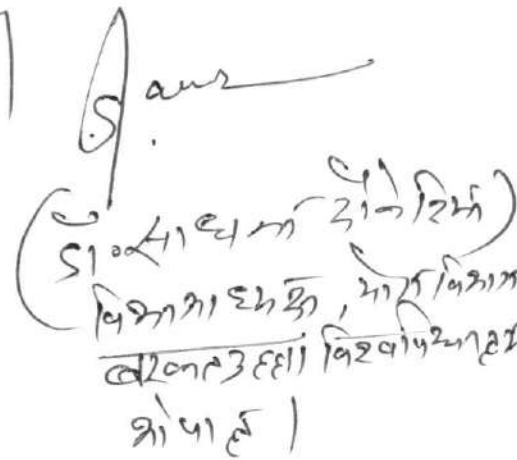 (डॉ० साधना दौनेरिया)
विभागाध्यक्ष, योग विभाग
बरकतउल्ला विश्वविद्यालय
भोपाल।